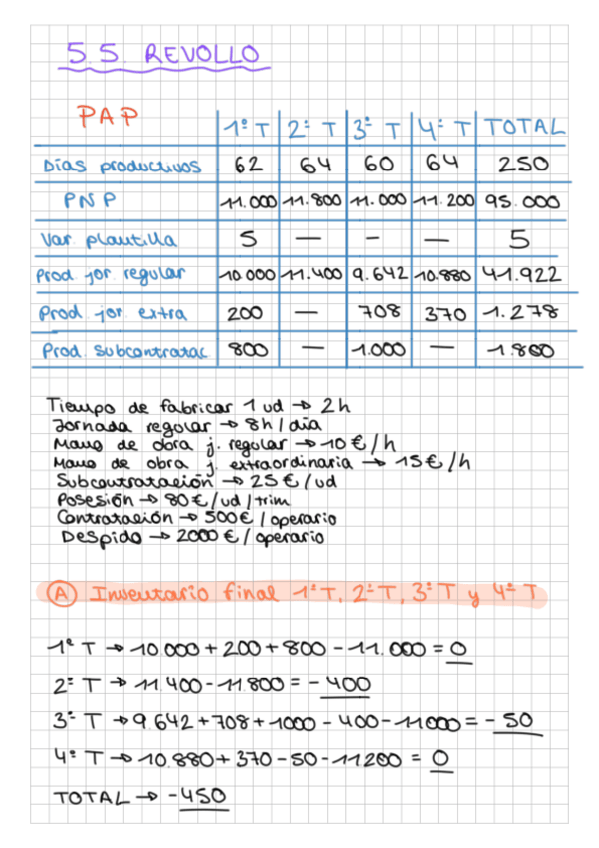 5.5 REVOLLO
PAP 1º T 2º T 3º T 4º T TOTAL
Días productivos 62 64 60 64 250
PNP 11.000 11.800 11.000 11.200 95.000
Var. plantilla 5 — – — 5
Prod jor regular 10.000 11.400 9.642 10.880 41.922
Prod. jor. extra 200 — 708 370 1.278
Prod. Subcontratac 800 — 1.000 — 1.800
Tiempo de fabricar 1 ud → 2h
Jornada regular → 8h/día
Mano de obra j. regular → 10 €/h
Mano de obra j. extraordinaria → 15€/h
Subcontratación → 25 €/ud
Posesión → 80€/ud/trim
Contratación → 500€/operario
Despido → 2000 €/operario
A Inventario final 1º T, 2º T, 3º T y 4º T
1º T → 10.000 + 200 + 800 - 11.000 = 0
2º T → 11.400 - 11.800 = - 400
3º T → 9.642 + 708 + 1000 - 400 - 11000 = - 50
4º T → 10.880 + 370 - 50 - 11200 = 0
TOTAL → -450